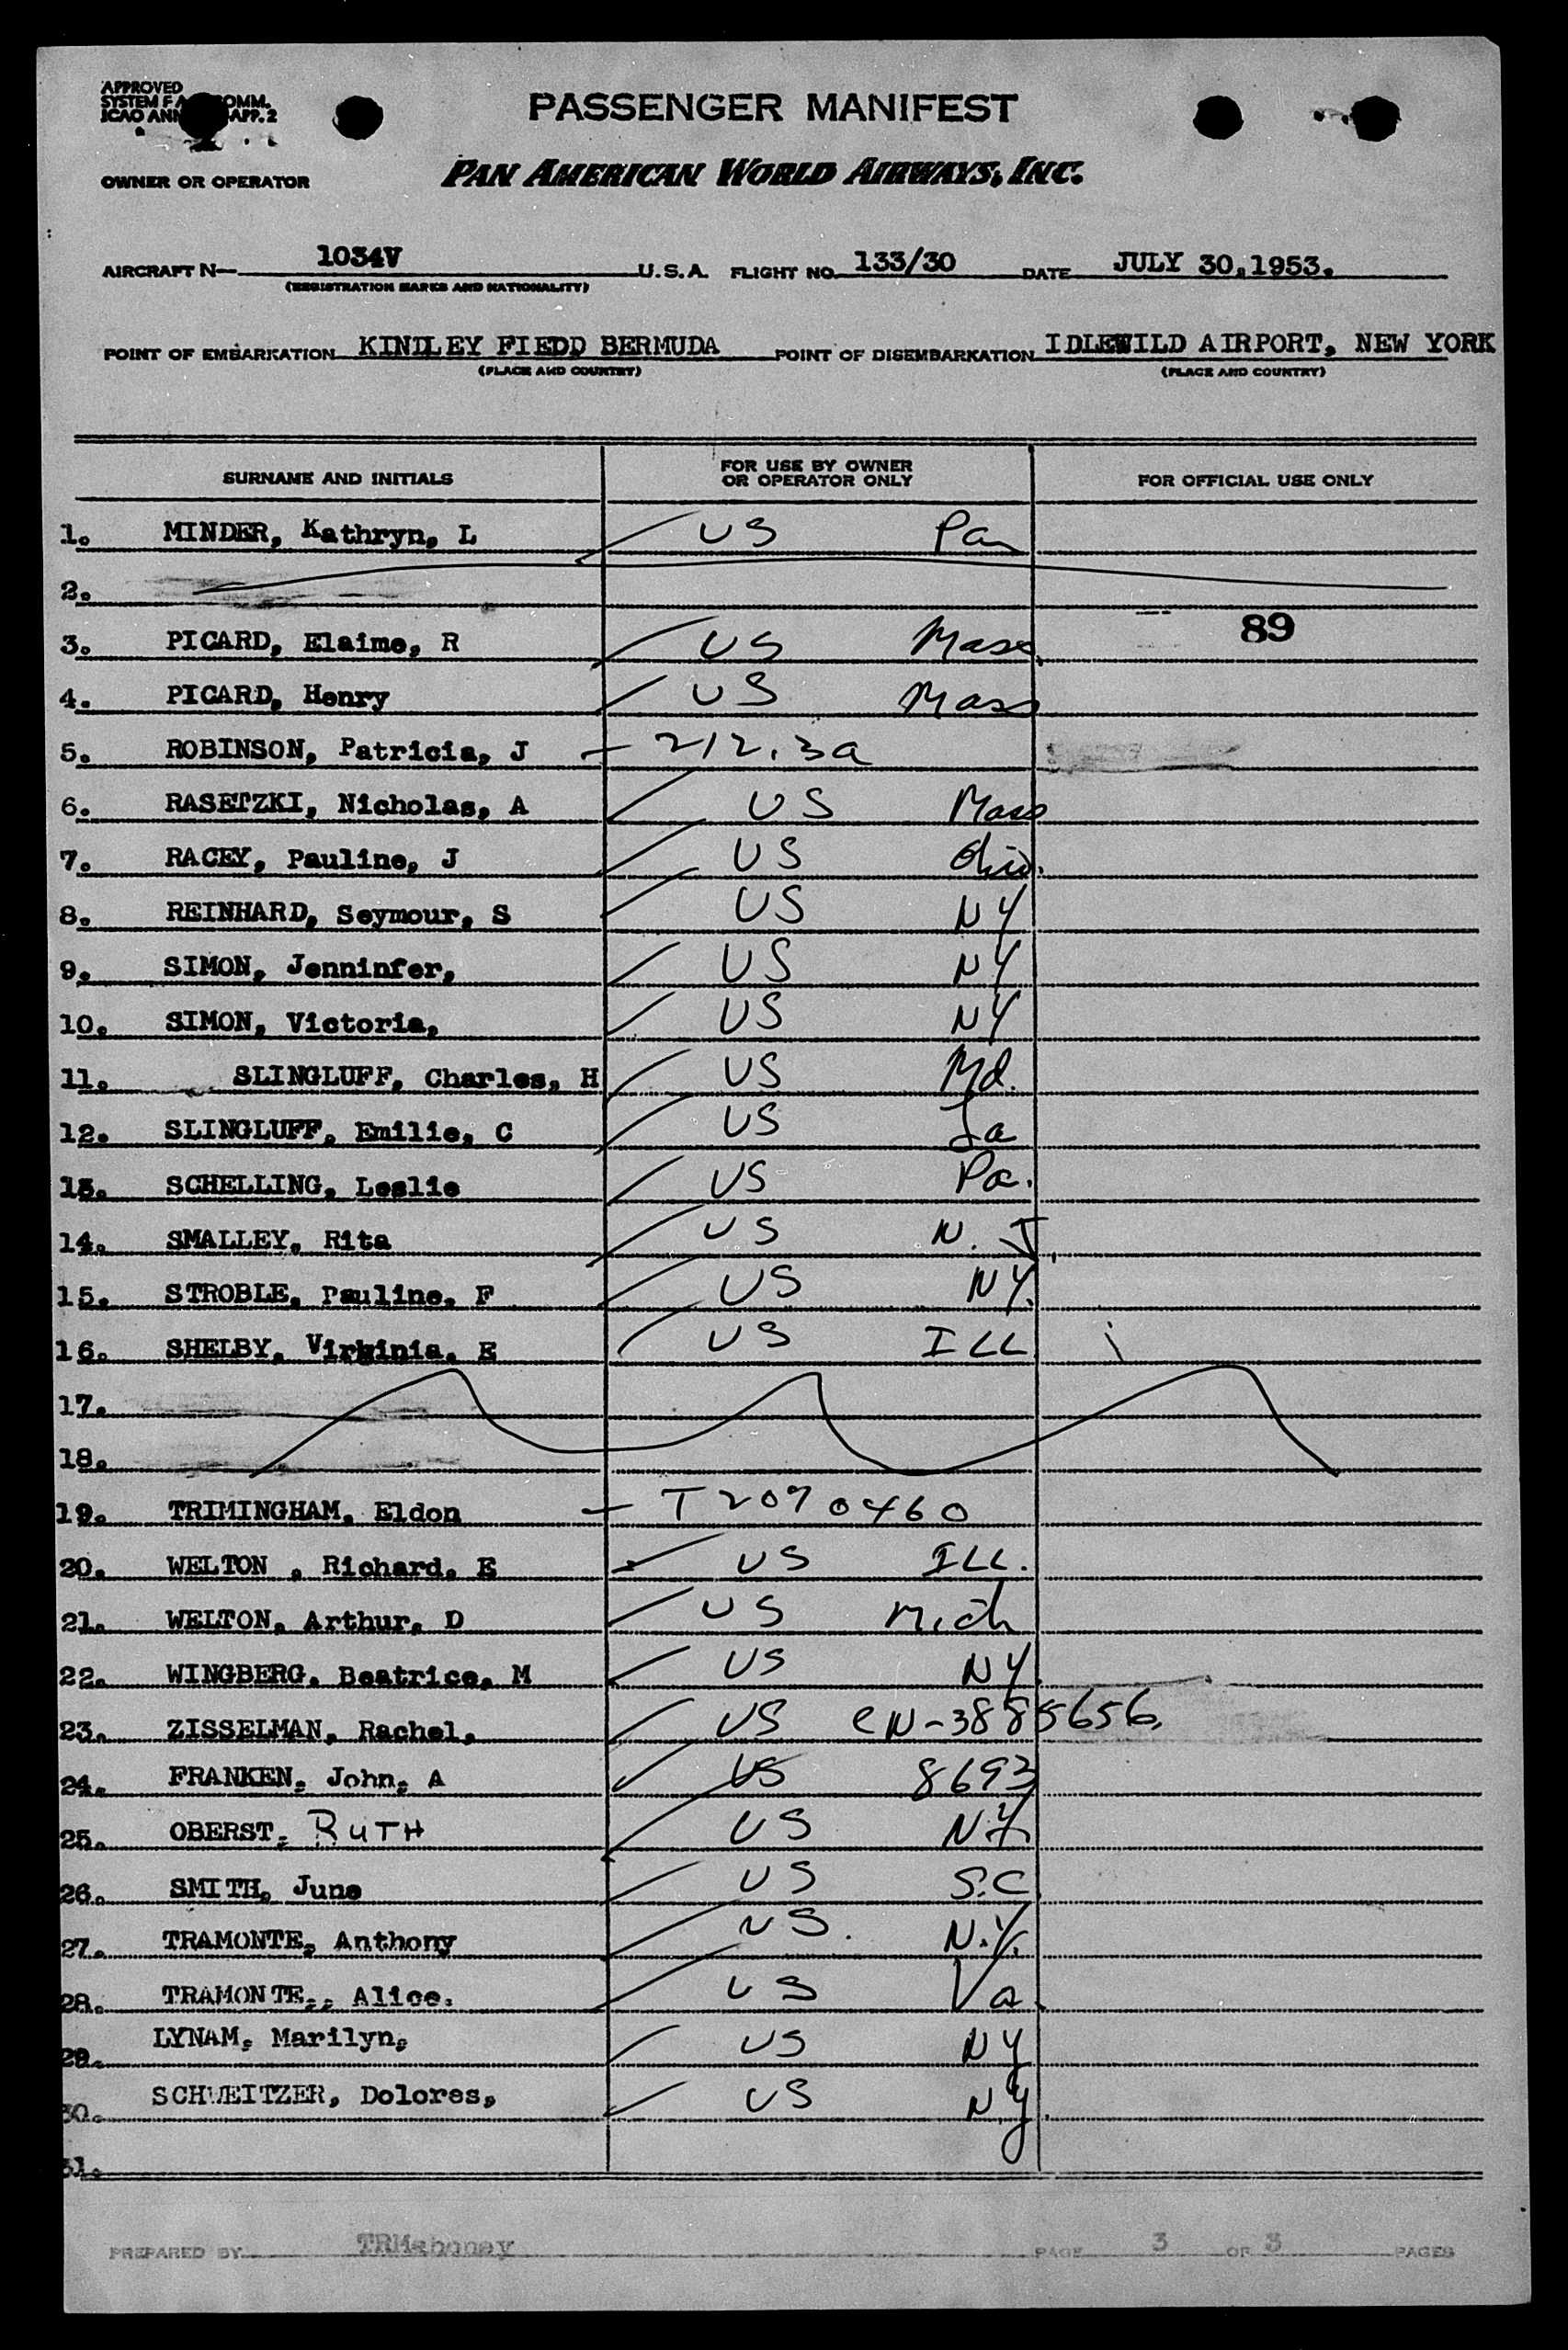 APPROVED
SYSTEM F A OMM.
ICAO ANN APP. 2
PASSENGER MANIFEST
OWNER OR OPERATOR PAN AMERICAN WORLD AIRWAYS, INC.
AIRCRAFT N— 1034V U.S.A. FLIGHT NO. 133/30 DATE JULY 30, 1953.
(REGISTRATION MARKS AND NATIONALITY)
POINT OF EMBARKATION KINDLEY FIEDD BERMUDA POINT OF DISEMBARKATION IDLEWILD AIRPORT, NEW YORK
(PLACE AND COUNTRY) (PLACE AND COUNTRY)
SURNAME AND INITIALS FOR USE BY OWNER OR OPERATOR ONLY FOR OFFICIAL USE ONLY
1. MINDER, Kathryn, L US Pa
2.
89
3. PICARD, Elaime, R US Mass.
4. PICARD, Henry US Mass
5. ROBINSON, Patricia, J - 212.3a
6. RASETZKI, Nicholas, A US Mass
7. RACEY, Pauline, J US Ohio.
8. REINHARD, Seymour, S US NY
9. SIMON, Jenninfer, US NY
10. SIMON, Victoria, US NY
11. SLINGLUFF, Charles, H US Md.
12. SLINGLUFF, Emilie, C US Ia
13. SCHELLING, Leslie US Pa.
14. SMALLEY, Rita US N. J.
15. STROBLE, Pauline, F US NY.
16. SHELBY, Virginia, E US ILL
17.
18.
19. TRIMINGHAM, Eldon - T2070460
20. WELTON , Richard, E US ILL.
21. WELTON, Arthur, D US Mich
22. WINGBERG, Beatrice, M US NY.
23. ZISSELMAN, Rachel, US CN-3885656.
24. FRANKEN, John, A US 8693
25. OBERST, RUTH US N.Y.
26. SMITH, June US S.C.
27. TRAMONTE, Anthony US. N.Y.
28. TRAMONTE,, Alice. US Va.
29. LYNAM, Marilyn, US NY
30. SCHWEITZER, Dolores, US NY.
31.
PREPARED BY TRMahoney PAGE 3 OF 3 PAGES